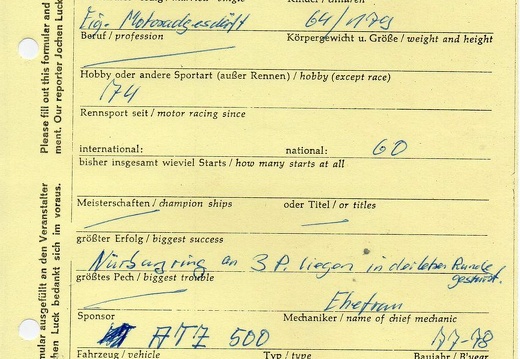 Eig. Motorradgeschäft 64/179
Beruf / profession Körpergewicht u. Größe / weight and height
Hobby oder andere Sportart (außer Rennen) / hobby (except race)
174
Rennsport seit / motor racing since
international: national: 60
bisher insgesamt wieviel Starts / how many starts at all
Meisterschaften / champion ships oder Titel / or titles
größter Erfolg / biggest success
Nürburgring an 3 P. liegen in der letzten Runde
gestürzt.
größtes Pech / biggest trouble
Ehefrau
Sponsor Mechaniker / name of chief mechanic
ATZ 500 77-78
Fahrzeug / vehicle Typ / type Baujahr / B'year
Please fill out this formular and
ment. Our reporter Jochen Luck
mular ausgefüllt an den Veranstalter
chen Luck bedankt sich im voraus.